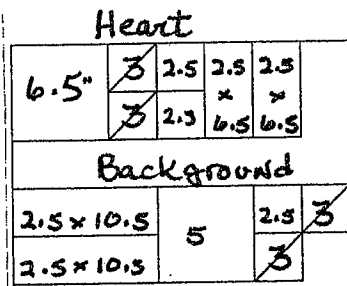 Heart
6.5" 3 2.5 2.5 x 6.5 2.5 x 6.5
3 2.5
Background
2.5 x 10.5 5 2.5 3
2.5 x 10.5 3